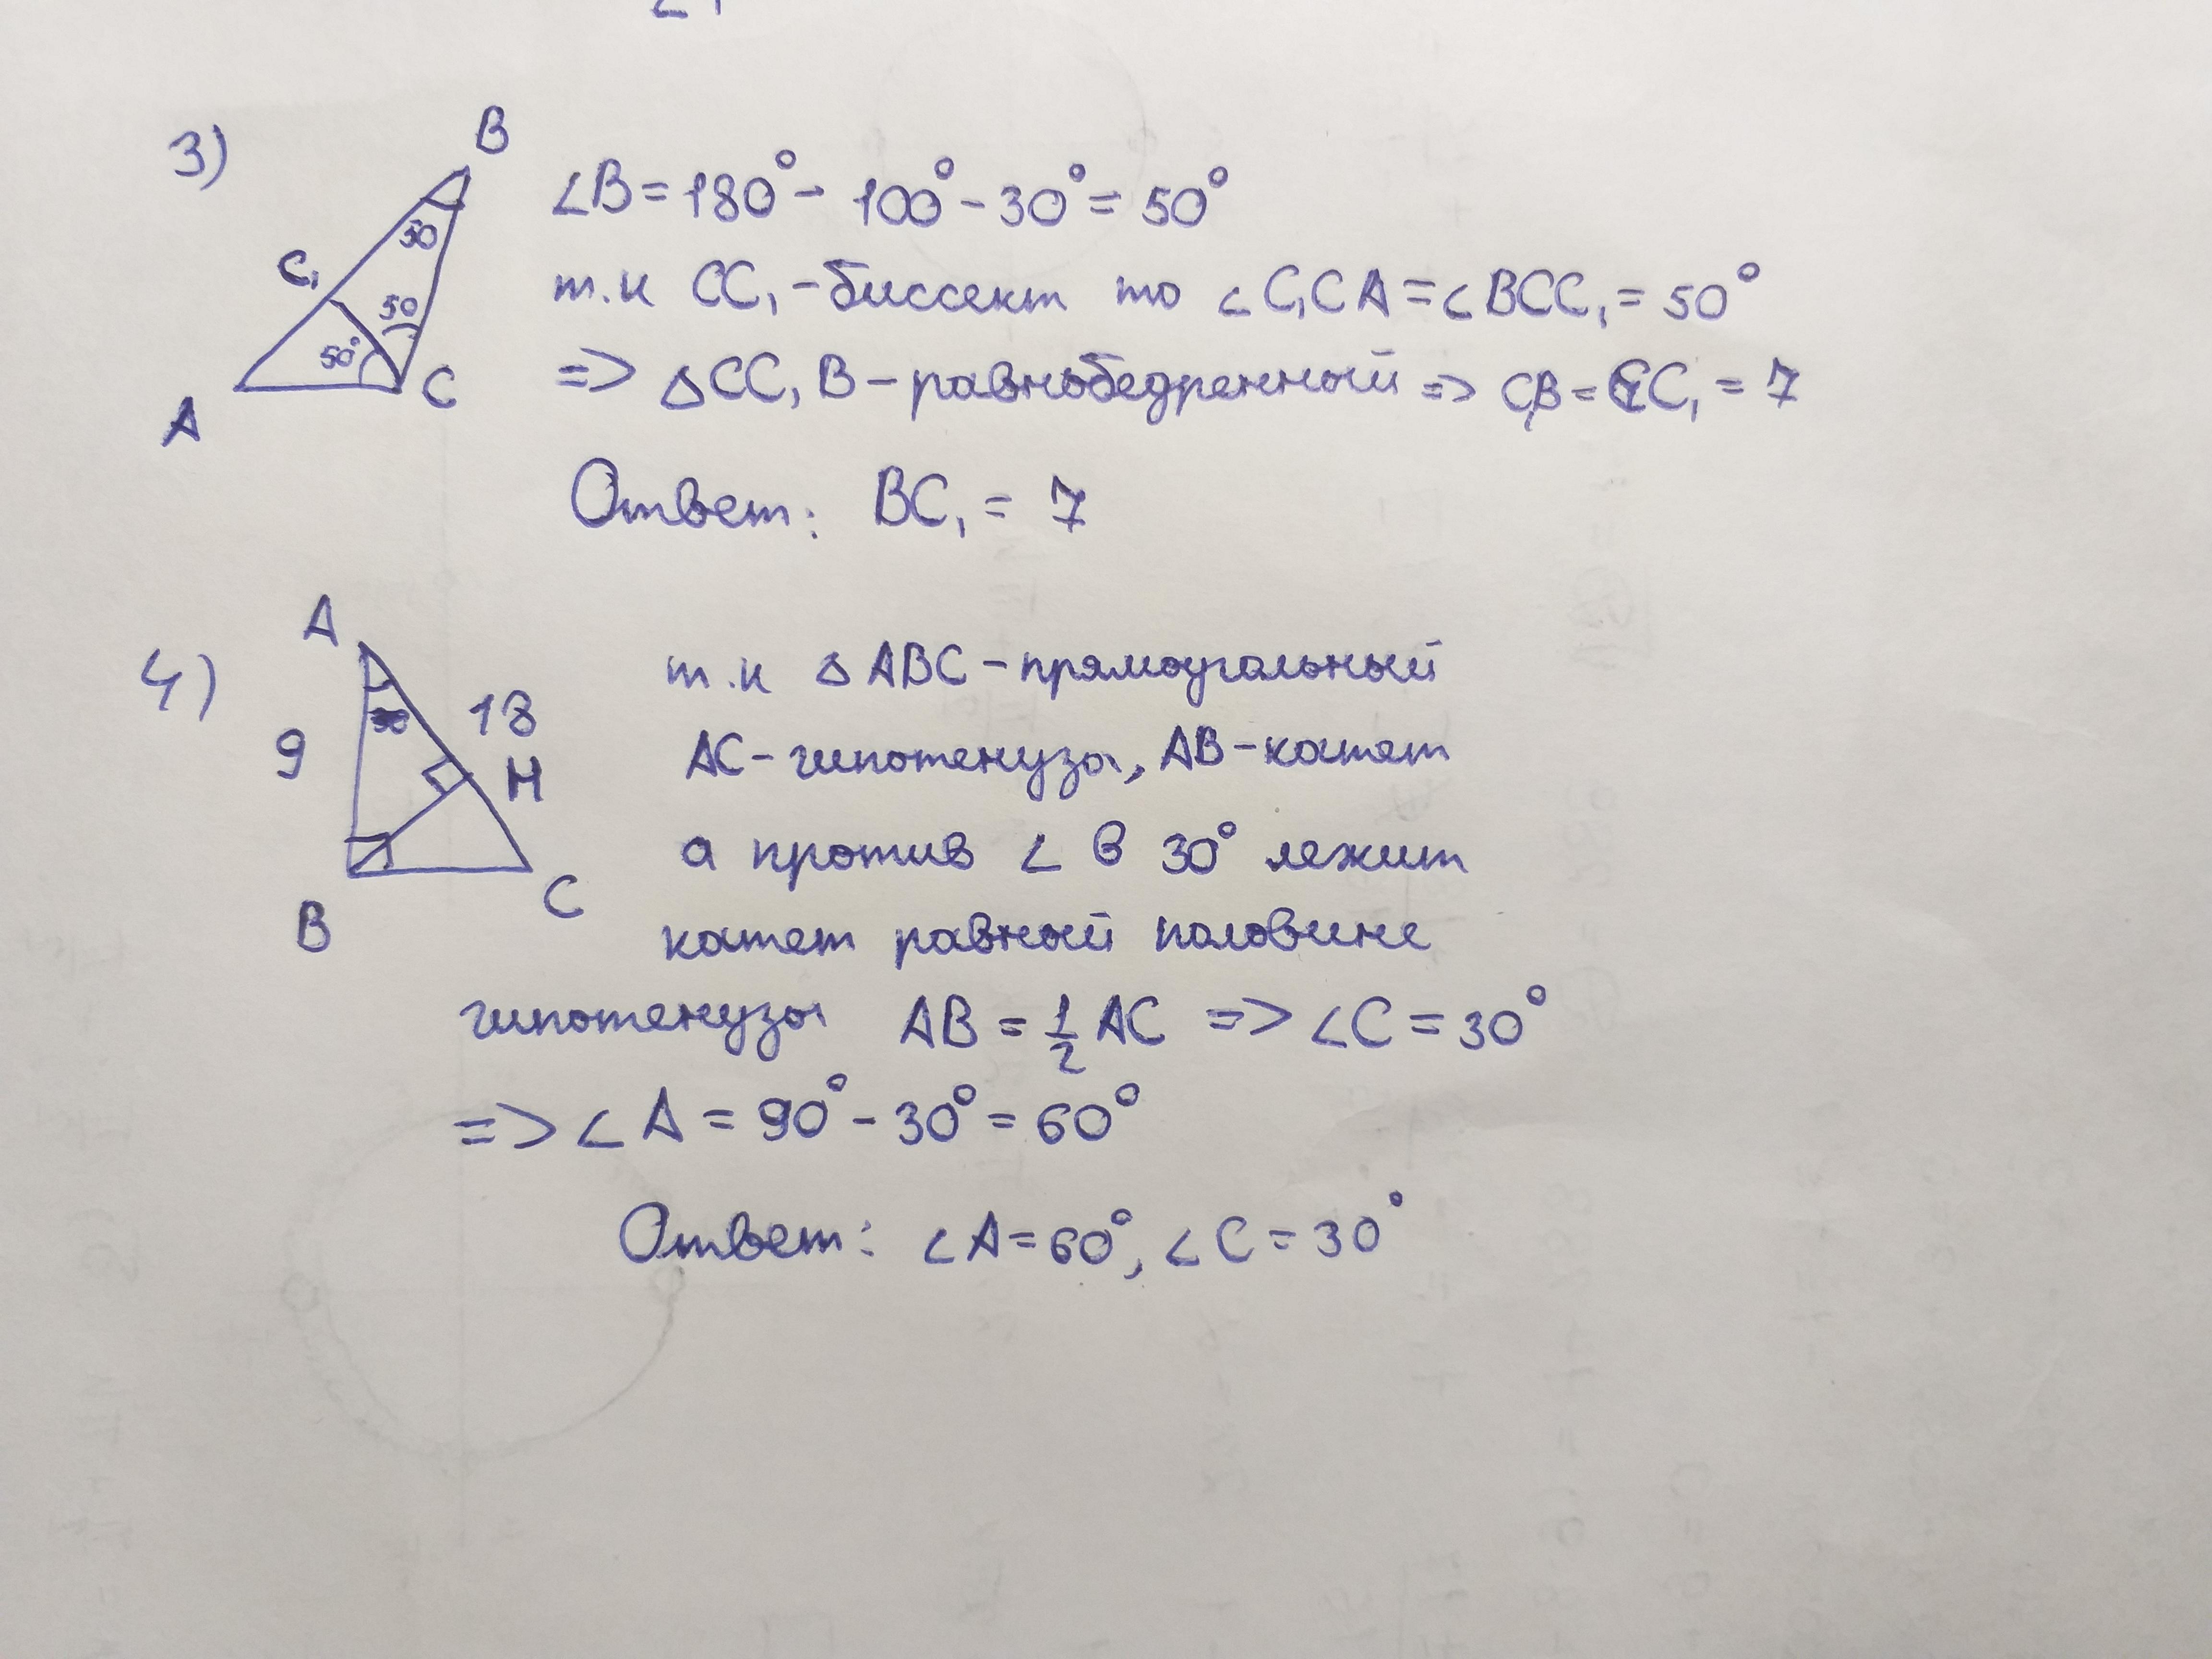 3)
B
∠B = 180° - 100° - 30° = 50°
50
C₁
т.к CC₁ - биссект то ∠C₁CA = ∠BCC₁ = 50°
50
50°
A
C
=> △CC₁B - равнобедренный => C₁B = CC₁ = 7
Ответ: BC₁ = 7
4)
A
т.к △ABC - прямоугольный
18
9
H
AC - гипотенуза, AB - катет
а против ∠ в 30° лежит
B
C
катет равный половине
гипотенузы AB = 1/2 AC => ∠C = 30°
=> ∠A = 90° - 30° = 60°
Ответ: ∠A = 60°, ∠C = 30°